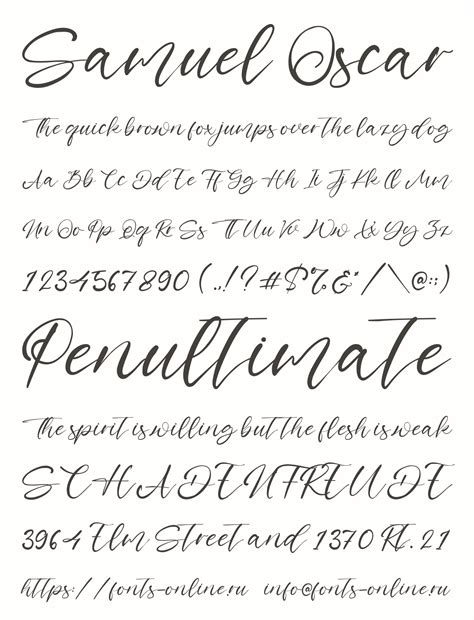 Samuel Oscar
The quick brown fox jumps over the lazy dog
Aa Bb Cc Dd Ee Ff Gg Hh Ii Jj Kk Ll Mm
Nn Oo Pp Qq Rr Ss Tt Uu Vv Ww Xx Yy Zz
1234567890 (.,!?#$%&'/\@:;)
Penultimate
The spirit is willing but the flesh is weak
SCHADENFREUDE
3964 Elm Street and 1370 Rt. 21
https://fonts-online.ru info@fonts-online.ru